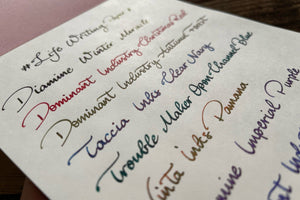 # Life Writing Paper
Diamine Winter Miracle
Dominant Industry Christmas Red
Dominant Industry Autumn
Taccia Inks Clear Navy
Trouble Maker Open Channel Blue
Vinta Inks Panama
Imperial Purple